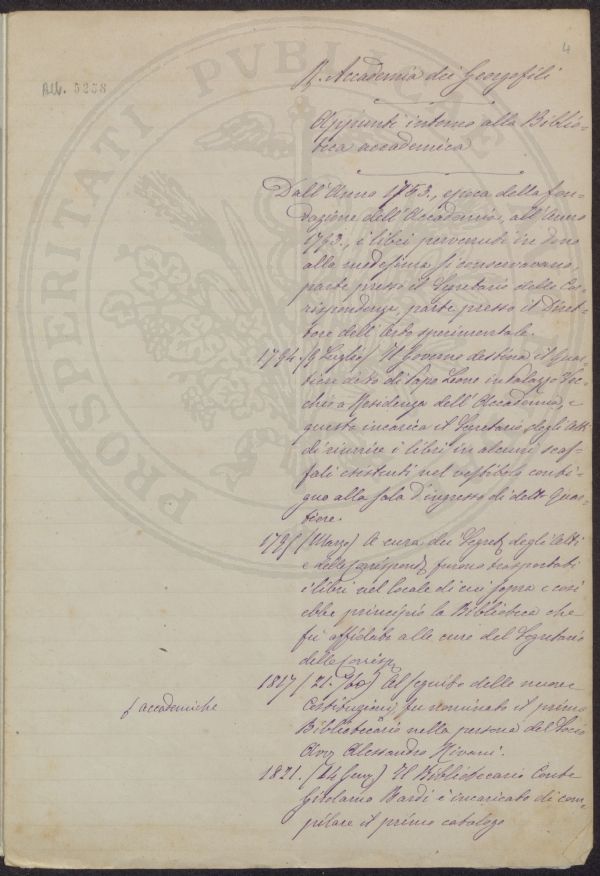 4
Bib. 5258
R. Accademia dei Georgofili
Appunti intorno alla Biblio-
teca accademica
Dall'Anno 1753., epoca della fon-
dazione dell'Accademia, all'Anno
1793., i libri pervenuti in dono
alla medesima si conservavano
parte presso il Segretario delle Cor-
rispondenze, parte presso il Diret-
tore dell'Orto sperimentale.
1794. (9 Luglio) Il Governo destina il Quar-
tiere detto di Papa Leone in Palazzo Vec-
chio a Residenza dell'Accademia, e
questa incarica il Segretario degli Atti
di riunire i libri in alcuni scaf-
fali esistenti nel vestibolo conti-
guo alla sala d'ingresso di detto Quar-
tiere.
1795 (Marzo) A cura dei Segret. degli Atti
e delle Corrispond. furono trasportati
i libri nel locale di cui sopra e così
ebbe principio la Biblioteca che
fu affidata alle cure del Segretario
delle Corrisp.
1817 (21. ) In seguito delle nuove
Costituzioni, fu nominato il primo
accademiche
Bibliotecario nella persona del Socio
Avv. Alessandro Rivani.
1821. (14 Genn.) Il Bibliotecario Conte
Girolamo Bardi è incaricato di com-
pilare il primo catalogo
PROSPERITATI PUBLICAE